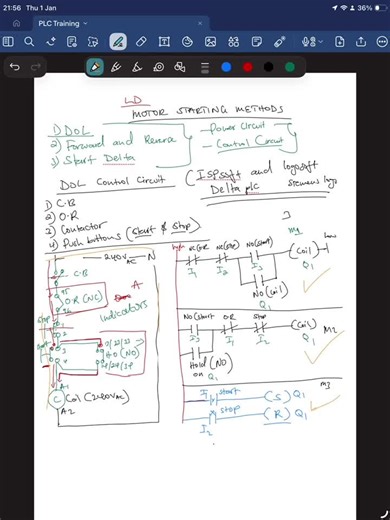 21:56 Thu 1 Jan
36%
PLC Training
LD
MOTOR STARTING METHODS
1) DOL
2) Forward and Reverse
3) Start Delta
Power Circuit
Control Circuit
DOL Control Circuit
(ISPsoft and logosoft
Delta plc
siemens logo
1) C.B
2) O.R
3) Contactor
4) Push bottons (Start & Stop)
240V AC
N
C.B
95
O.R (NC)
96
A
Indicators
Stop
Start
H.O (NO)
A1
C
Coil (240VAC)
A2
NC(OR
NC(stop
NO(start)
M1
(Coil)
Q1
I1
I2
I3
NO(Coil)
Q1
NO(start
OR
Stop
(Coil)
M2
Q1
I3
I1
I2
Hold (NO)
on Q1
M3
I1
start
(S) Q1
stop
(R) Q1
I2